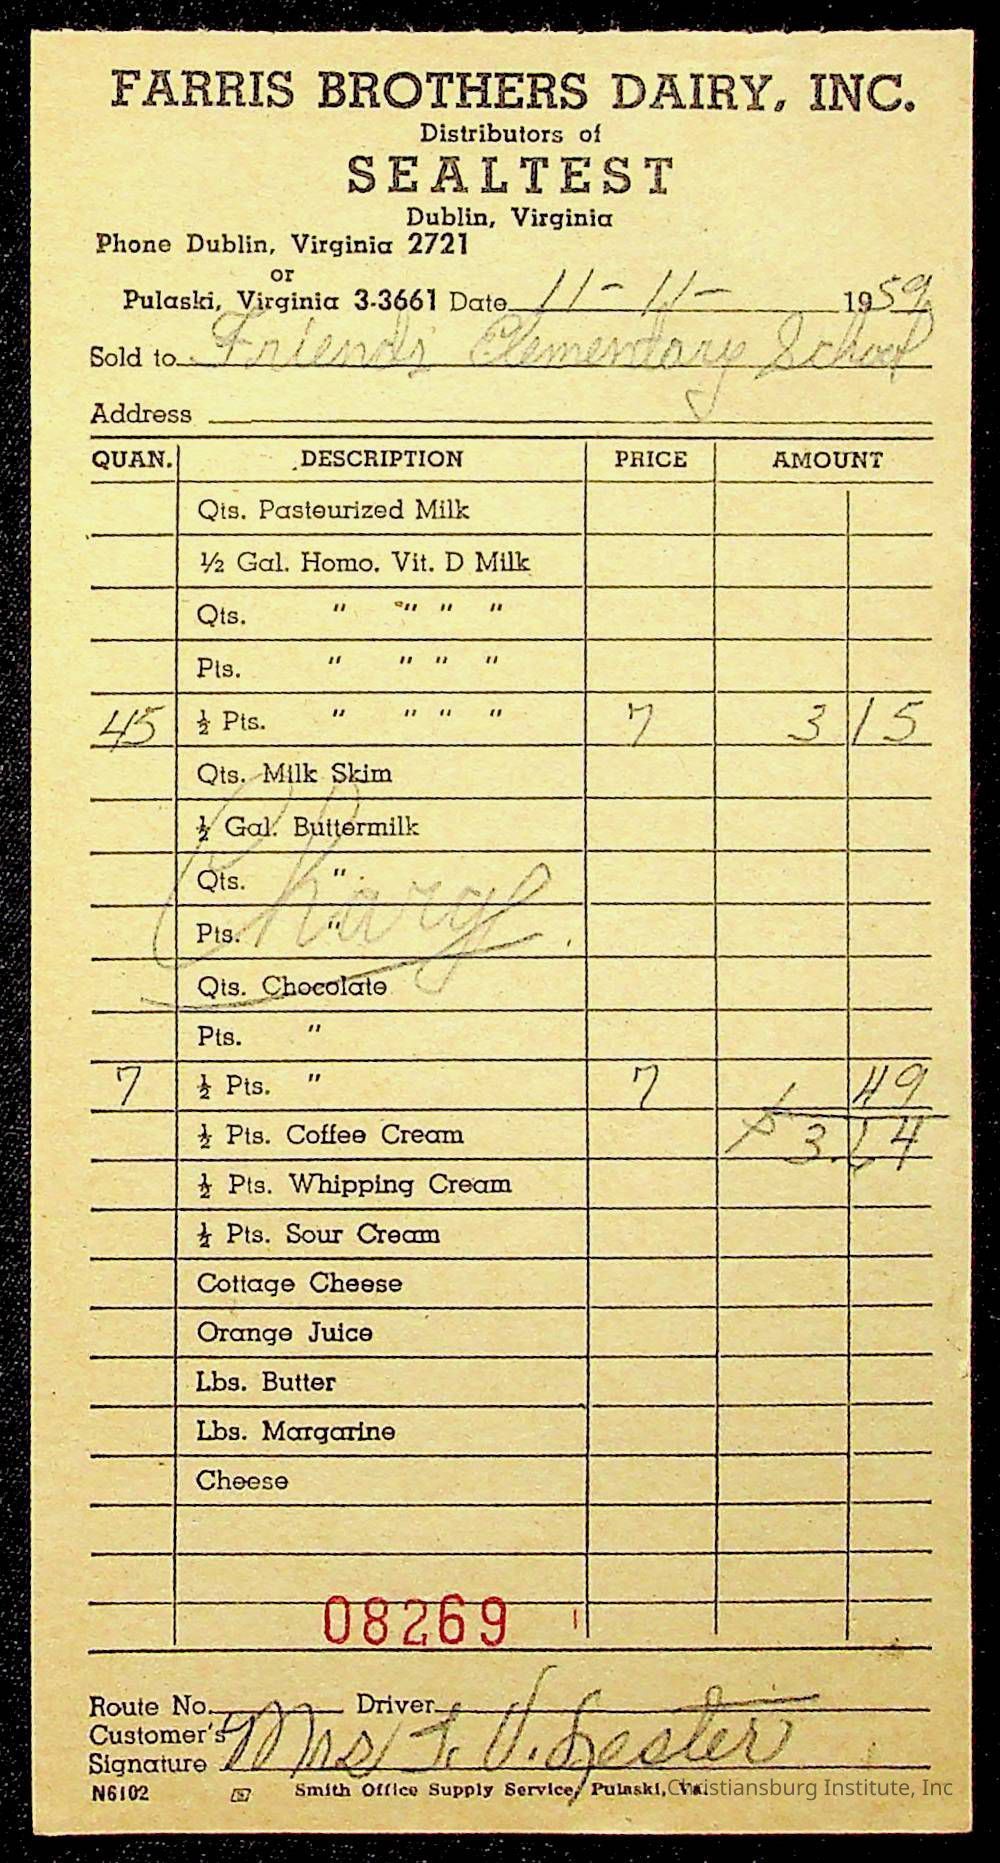 FARRIS BROTHERS DAIRY, INC.
Distributors of
SEALTEST
Dublin, Virginia
Phone Dublin, Virginia 2721
or
Pulaski, Virginia 3-3661 Date 11-11- 1959
Sold to Friends Elementary School
Address
QUAN. DESCRIPTION PRICE AMOUNT
Qts. Pasteurized Milk
½ Gal. Homo. Vit. D Milk
Qts. " " " "
Pts. " " " "
45 ½ Pts. " " " " 7 3 15
Qts. Milk Skim
½ Gal. Buttermilk
Qts. "
Charge
Pts. "
Qts. Chocolate
Pts. "
7 ½ Pts. " 7 49
½ Pts. Coffee Cream $3.64
½ Pts. Whipping Cream
½ Pts. Sour Cream
Cottage Cheese
Orange Juice
Lbs. Butter
Lbs. Margarine
Cheese
08269
Route No. Driver
Customer's
Signature Mrs F. V. Lester
N6102 Smith Office Supply Service, Pulaski, Va.
Christiansburg Institute, Inc